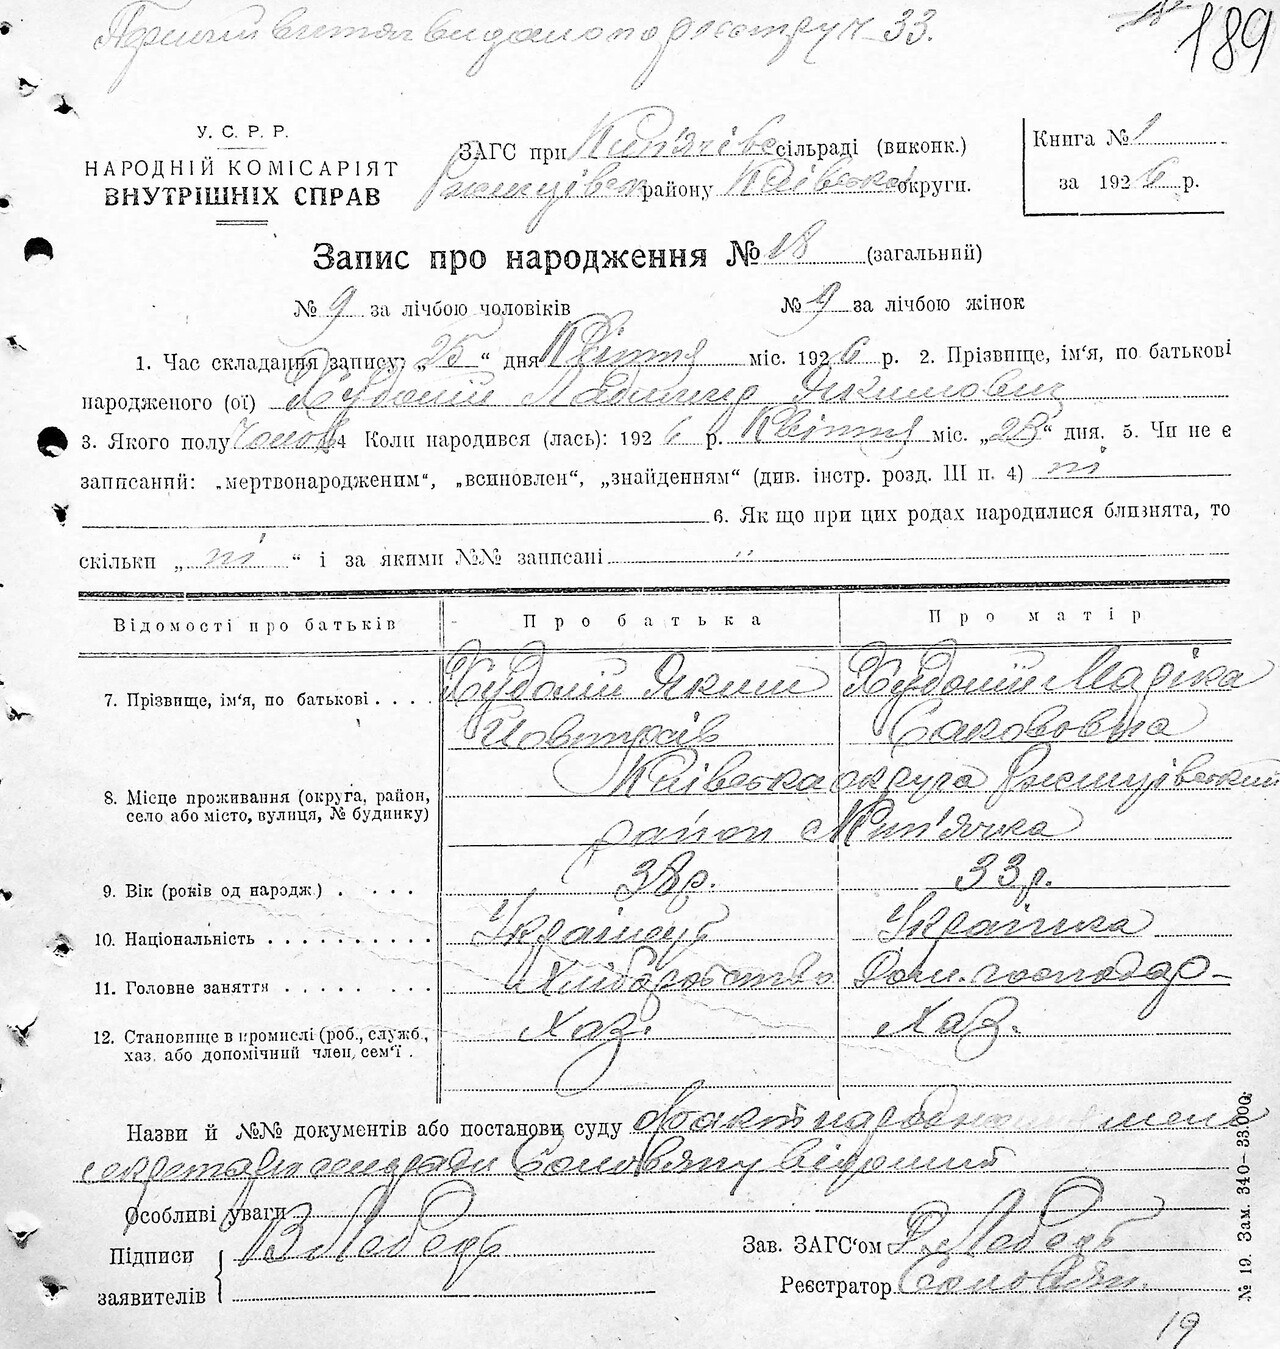 Перший витяг видано по реєстру ч 33.
189
У. С. Р. Р.
НАРОДНІЙ КОМІСАРІЯТ
ВНУТРІШНІХ СПРАВ
ЗАГС при сільраді (виконк.)
району Київської округи.
Книга № 1
за 1926 р.
Запис про народження № 18 (загальний)
№ 9 за лічбою чоловіків № 9 за лічбою жінок
1. Час складання запису: „25“ дня Квітня міс. 1926 р. 2. Прізвище, ім'я, по батькові
народженого (ої) Худолій Якимович
3. Якого полу Чолов 4 Коли народився (лась): 1926 р. Квітня міс. „23“ дня. 5. Чи не є
записаний: „мертвонародженим“, „всиновлен“, „знайденням“ (див. інстр. розд. III п. 4) ні
6. Як що при цих родах народилися близнята, то
скільки „ні“ і за якими №№ записані "
Відомості про батьків Про батька Про матір
7. Прізвище, ім'я, по батькові . . . . Худолій Яким Худолій
8. Місце проживання (округа, район, Київська округа Ржищівський
село або місто, вулиця, № будинку) район
9. Вік (років од народж) . . . . 38р. 33р.
10. Національність . . . . . . . . . . Українець Українка
11. Головне заняття . . . . . . . . Хліборобство Дом. господар-
12. Становище в промислі (роб., служб., Хаз. Хаз.
хаз. або допомічний член, сем'ї .
Назви й №№ документів або постанови суду факт народження мені
секретарю сільради відомий
Особливі уваги
Підписи В Лебедь Зав. ЗАГС'ом Лебедь
заявителів Реєстратор
№ 19. Зам. 340–33.000.
19